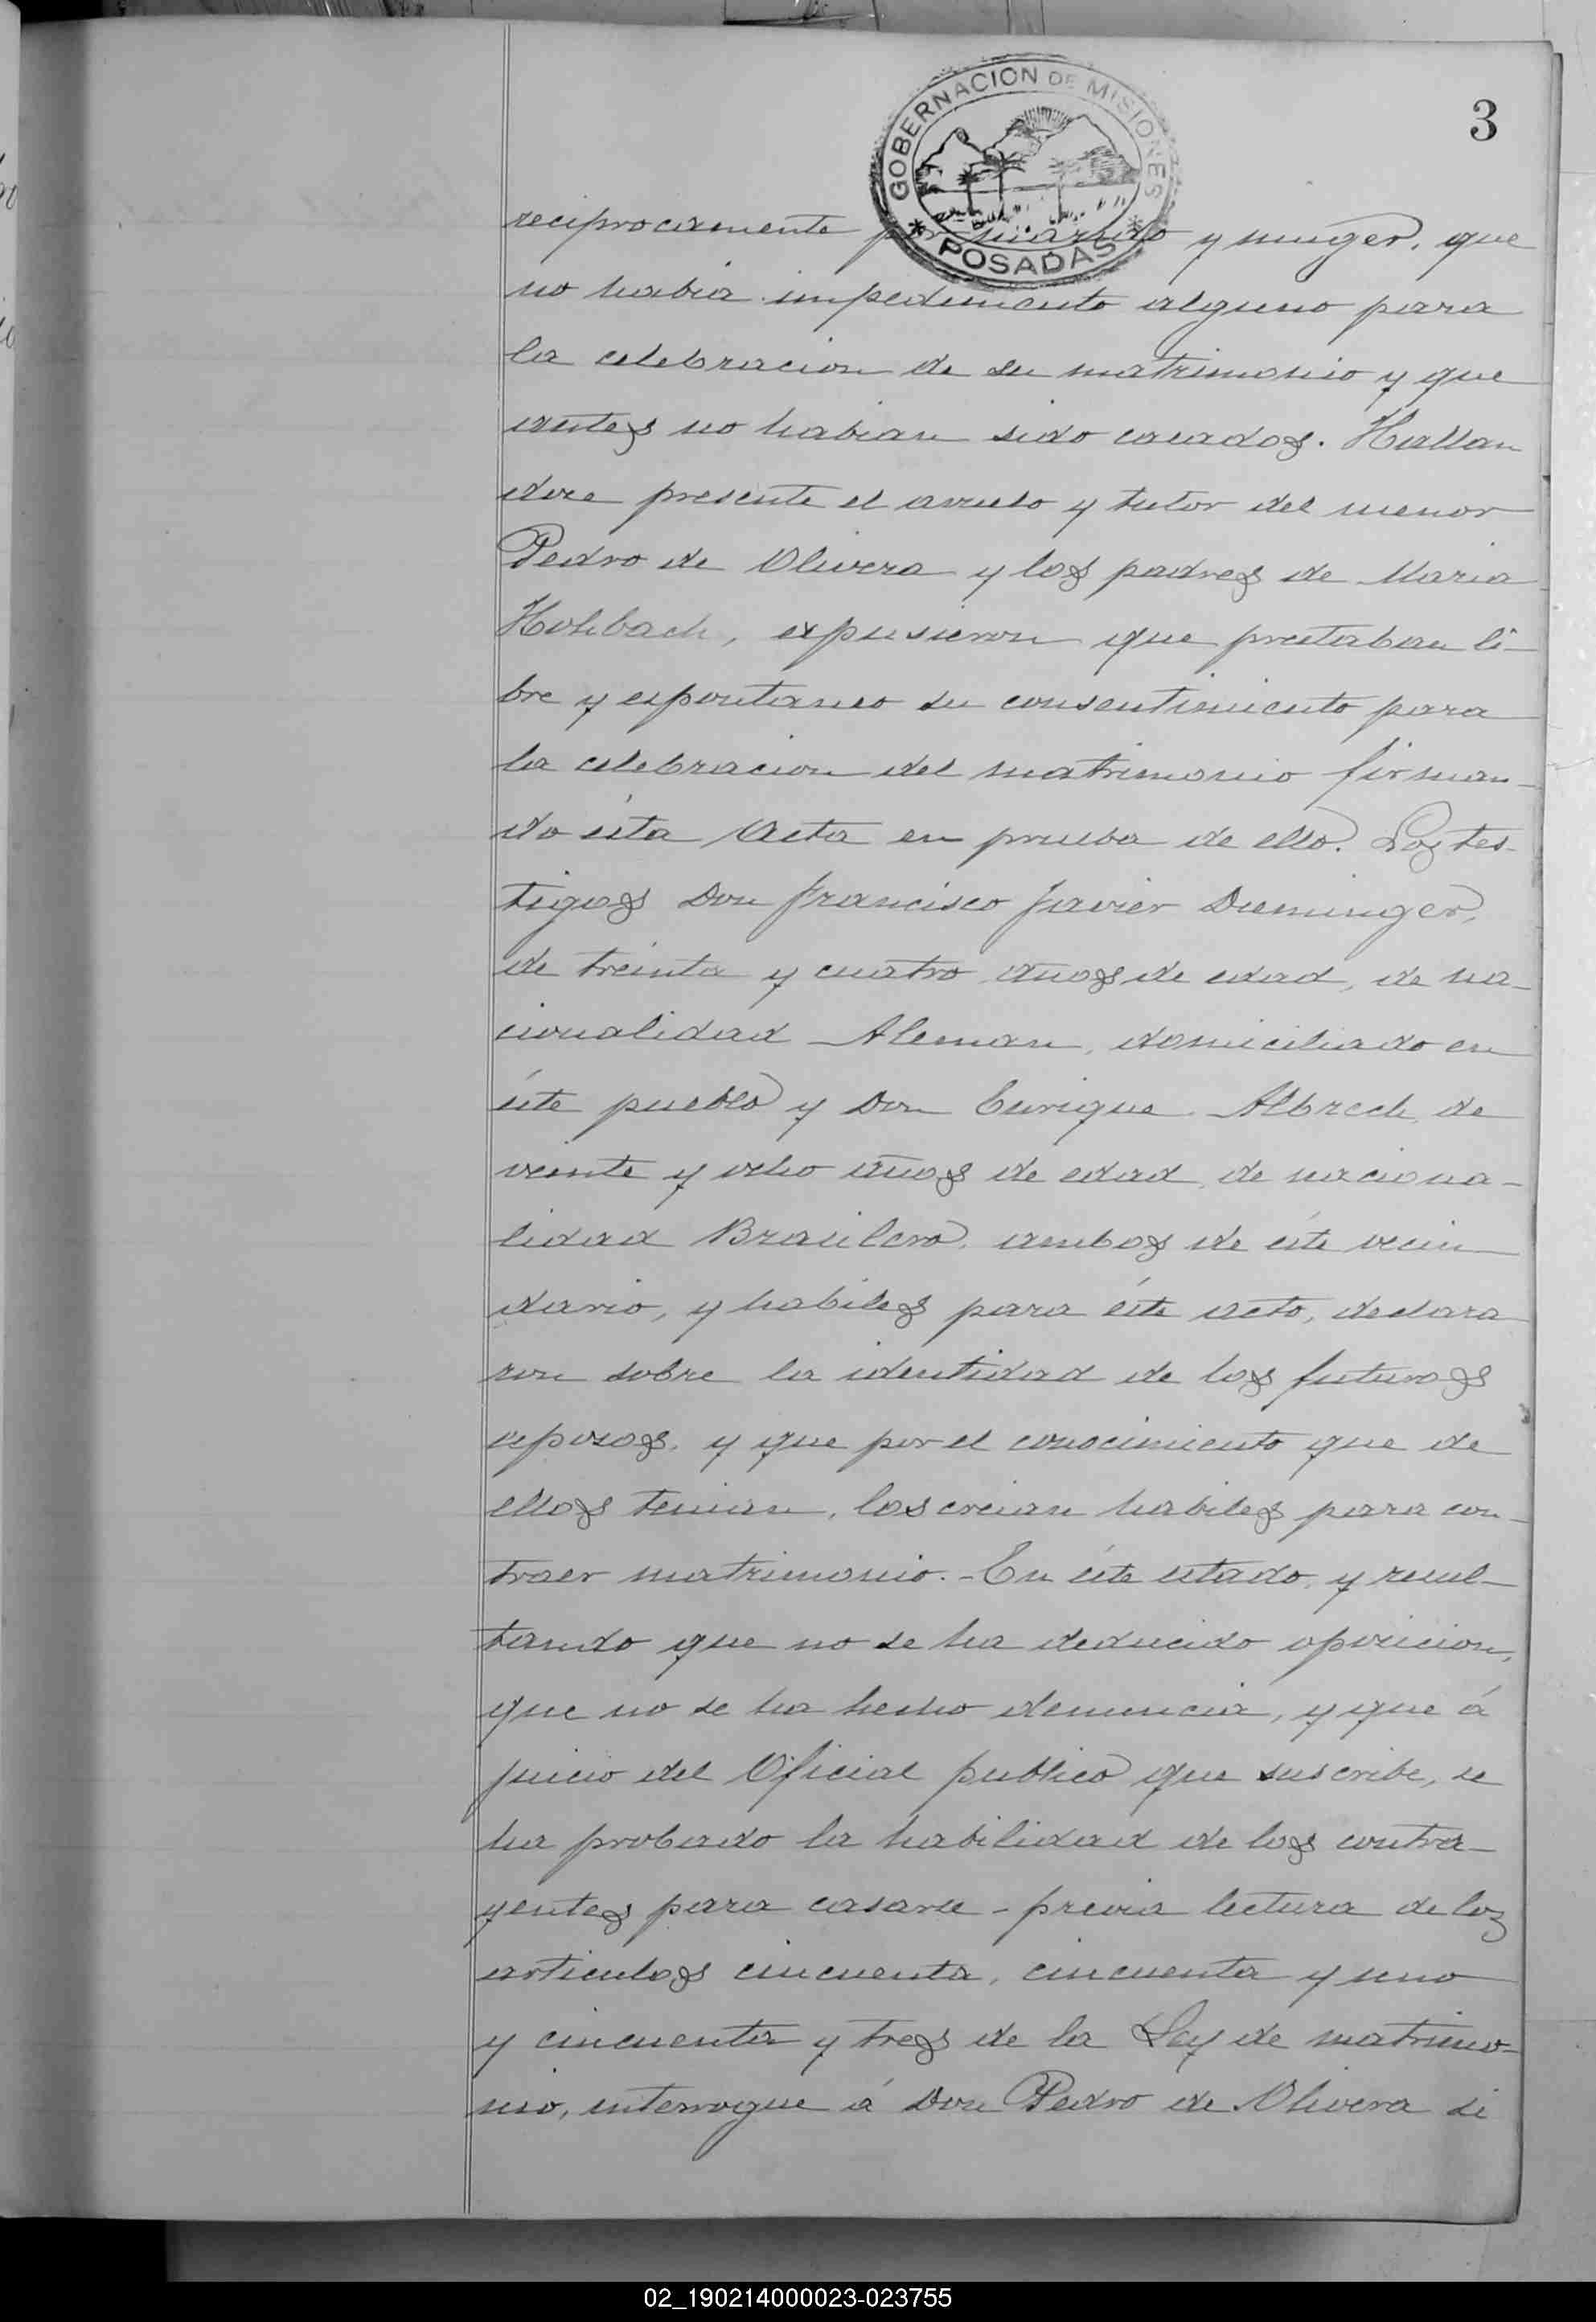 GOBERNACION DE MISIONES
* POSADAS *
3
reciprocamente por marido y muger, que
no habia impedimento alguno para
la celebracion de su matrimonio y que
antes no habian sido casados. Hallan
dose presente el avuelo y tutor del menor
Pedro de Olivera y los padres de Maria
Hohbach, expusieron que prestaban li-
bre y espontaneo su consentimiento para
la celebracion del matrimonio firman-
do ésta Acta en prueba de ello. Los tes-
tigos Don Francisco Javier Dieminger,
de treinta y cuatro años de edad, de na-
cionalidad Aleman, domiciliado en
éste pueblo y Don Enrique Albrech, de
veinte y ocho años de edad, de naciona-
lidad Brasilero, ambos de éste vecin
dario, y habiles para éste acto, declara
ron sobre la identidad de los futuros
esposos, y que por el conocimiento que de
ellos tenian, los creian habiles para con-
traer matrimonio. - En éste estado, y resul-
tando que no se ha deducido oposicion,
que no se ha hecho denuncia, y que á
juicio del Oficial publico que suscribe, se
ha probado la habilidad de los contra-
yentes para casarse - previa lectura de los
articulos cincuenta, cincuenta y uno
y cincuenta y tres de la Ley de matrimo-
nio, interrogue á Don Pedro de Olivera si
02_190214000023-023755